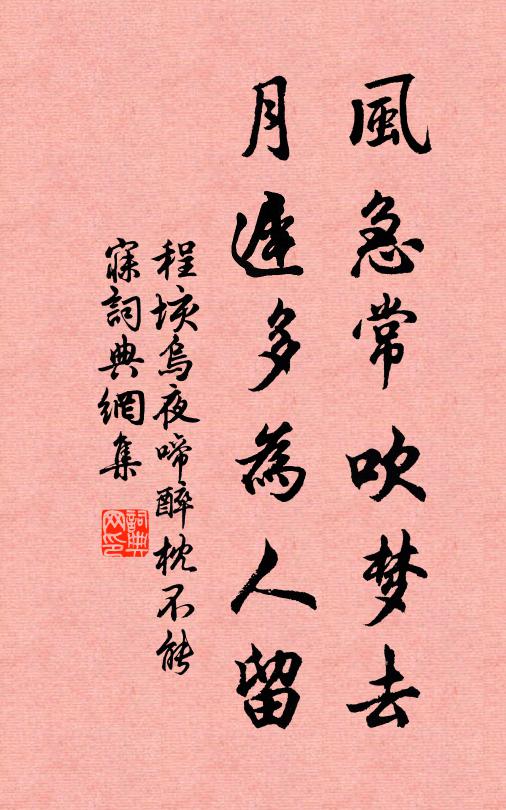 風急常吹梦去
月遲多為人留
程垓烏夜啼醉枕不能
寐詞典網集
詞典
网印